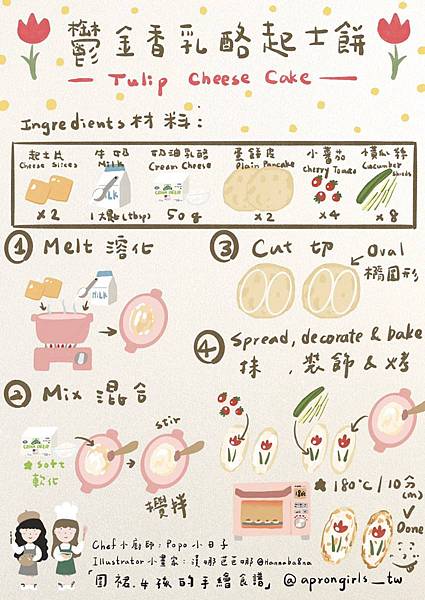 鬱金香乳酪起士餅
Tulip Cheese Cake
Ingredients 材料:
起士片 牛奶 奶油乳酪 蛋餅皮 小蕃茄 小黃瓜絲
Cheese Slices Milk Cream Cheese Plain Pancake Cherry Tomato Cucumber Shreds
x2 1大匙(tbsp) 50g x2 x4 x8
① Melt 溶化
MILK
② Mix 混合
★ soft
軟化
stir
攪拌
③ Cut 切
Oval
橢圓形
④ Spread, decorate & bake
抹、裝飾 & 烤
★ 180°C/10分
(m)
✓
Done
Chef 小廚師: Popo 小日子
Illustrator 小畫家: 漢娜芭芭娜 @Hannaba8na
「圍裙.4孩的手繪食譜」 @aprongirls_tw